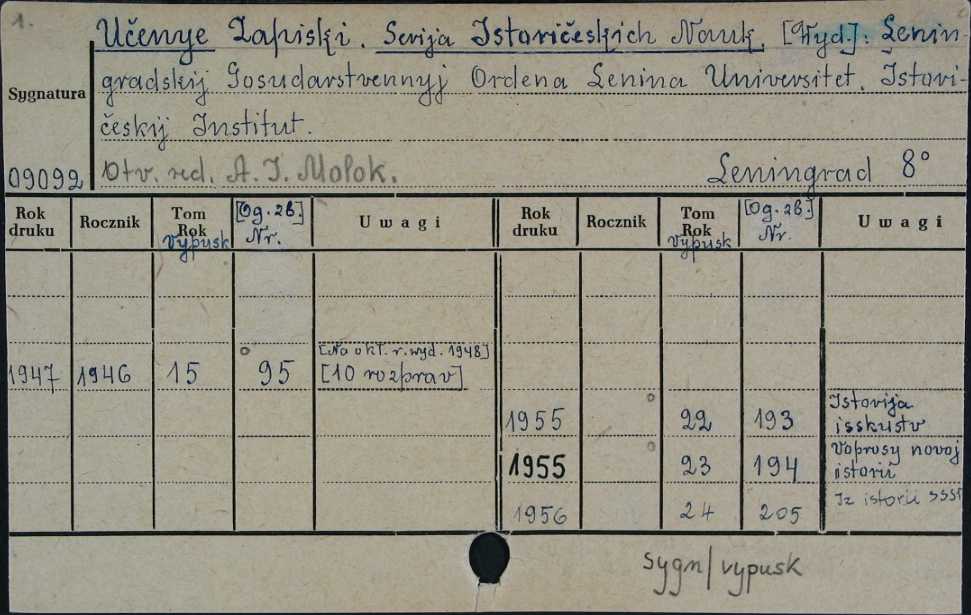 1.
Učenye Zapiski. Serija Istoričeskich Nauk. [Wyd.]: Lenin-
gradskij Gosudarstvennyj Ordena Lenina Universitet. Istori-
českij Institut.
Sygnatura
09092
Otv. red. A. I. Mołok.
Leningrad 8°
Rok druku | Rocznik | Tom Rok Vypusk | [Og. zb.] Nr. | Uwagi | Rok druku | Rocznik | Tom Rok Vypusk | [Og. zb.] Nr. | Uwagi
1947 | 1946 | 15 | 95 | [Na okł. r. wyd. 1948] [10 rozprav]
1955 | 22 | 193 | Istorija isskustv
1955 | 23 | 194 | Voprosy novoj istorii
1956 | 24 | 205 | Iz istorii SSSR
sygn/vypusk